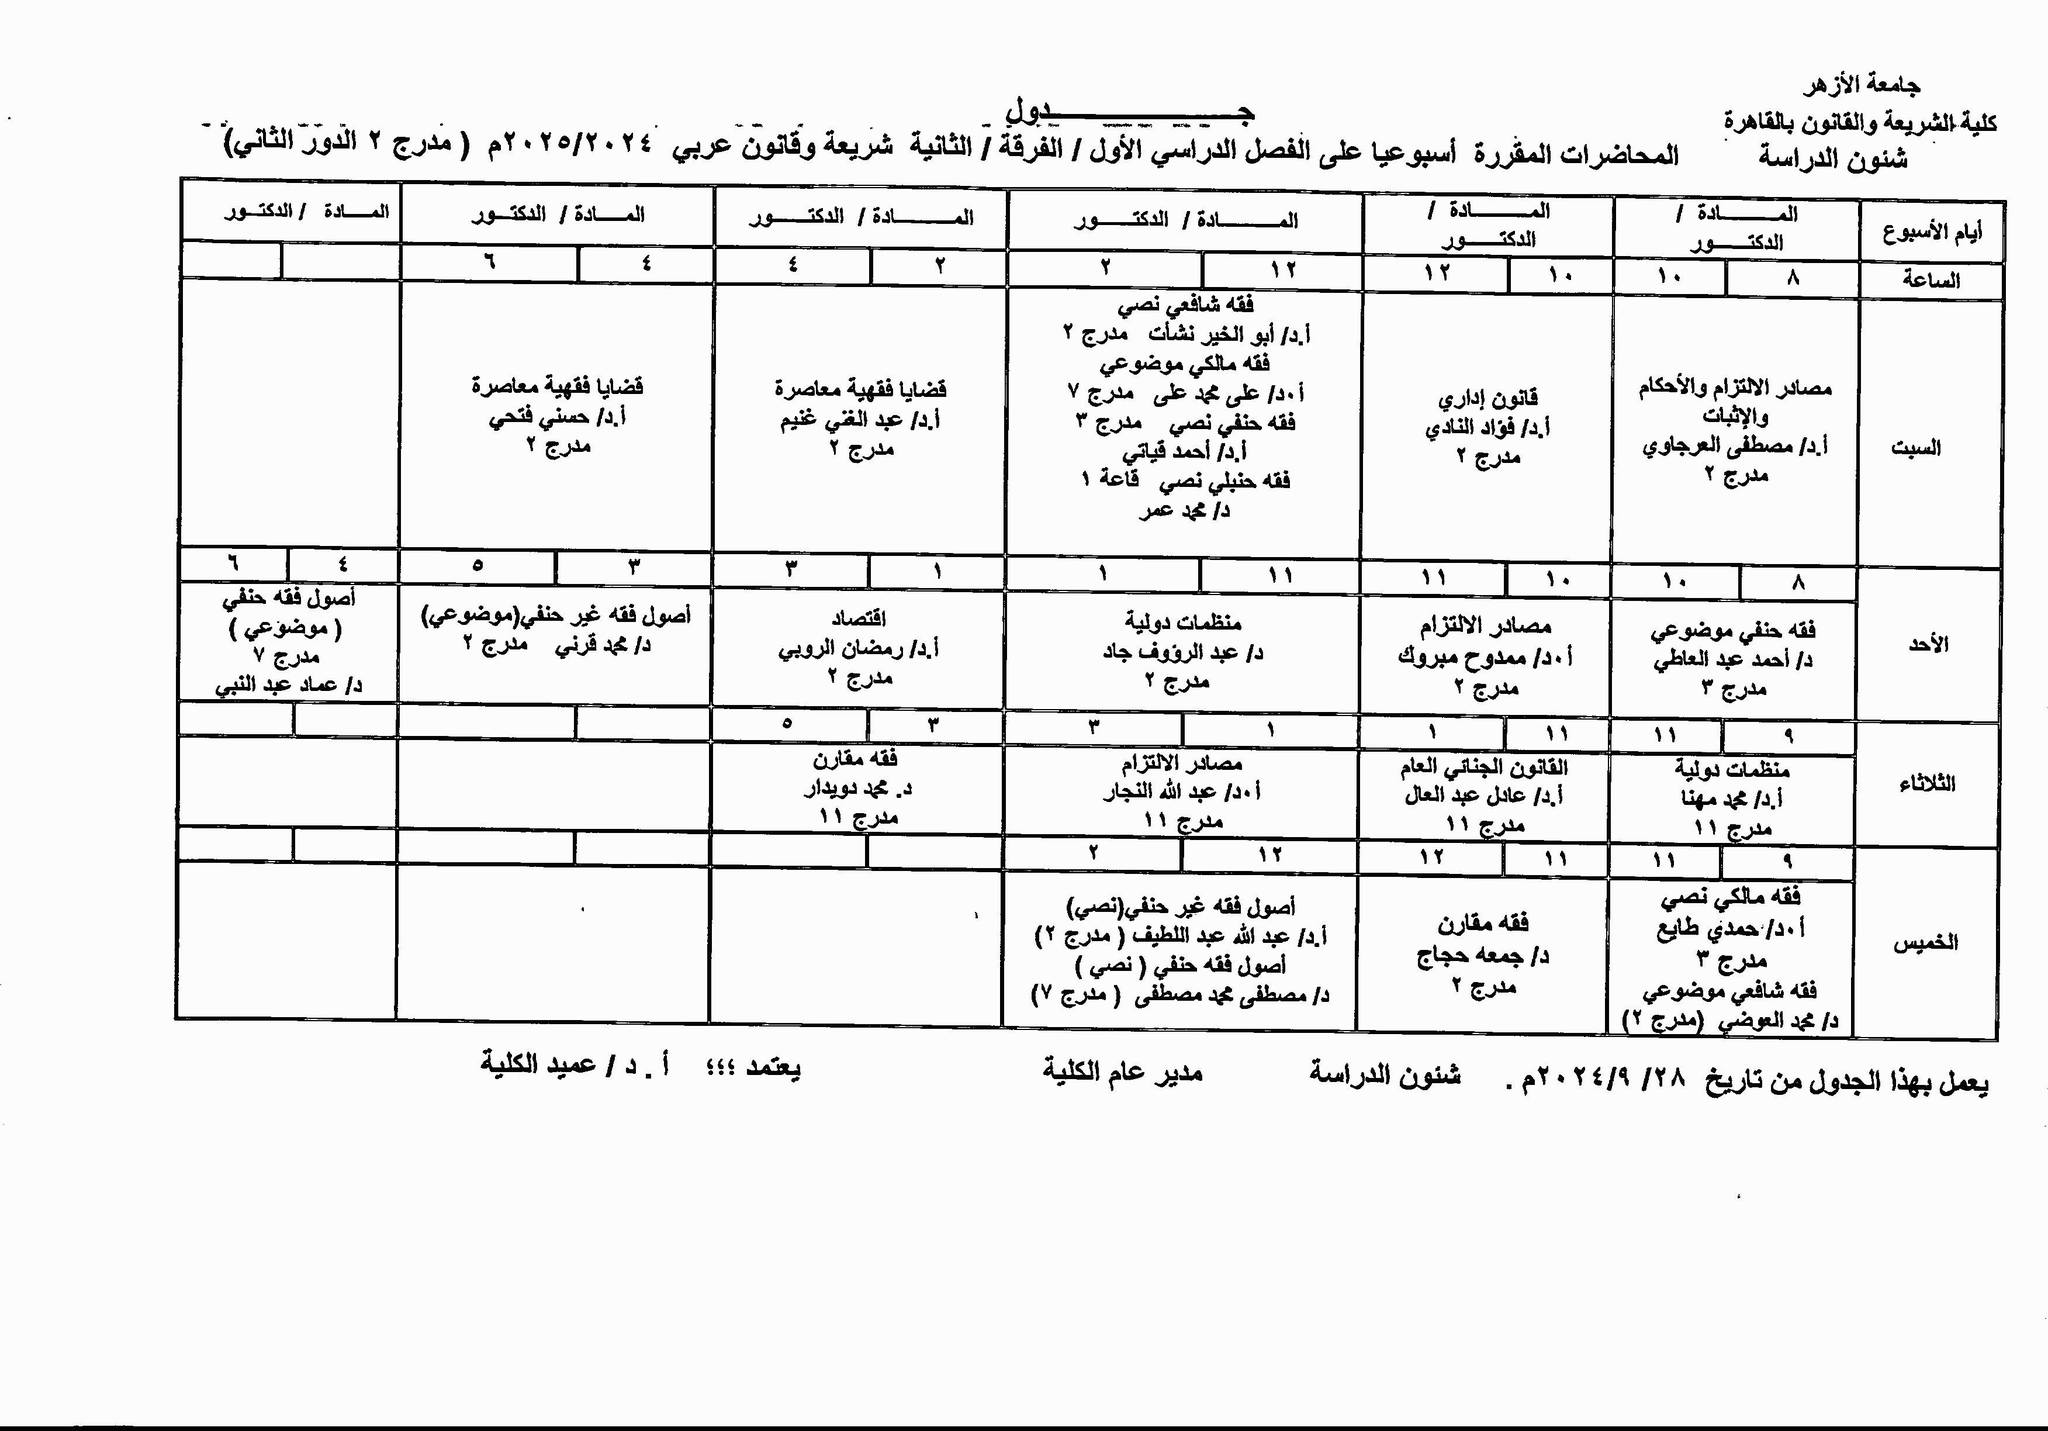 جامعة الأزهر
كلية الشريعة والقانون بالقاهرة
شئون الدراسة
جـــــدول
المحاضرات المقررة أسبوعيا على الفصل الدراسي الأول / الفرقة / الثانية شريعة وقانون عربي ٢٠٢٥/٢٠٢٤م ( مدرج ٢ الدور الثاني)
أيام الأسبوع
المـــــادة /
الدكتــــور
المـــــادة /
الدكتــــور
المـــــادة / الدكتــــور
المـــــادة / الدكتــــور
المـــــادة / الدكتــــور
المـــــادة / الدكتــــور
الساعة
٨ ١٠
١٠ ١٢
١٢ ٢
٢ ٤
٤ ٦
السبت
مصادر الالتزام والأحكام
والإثبات
أ.د/ مصطفى العرجاوي
مدرج ٢
قانون إداري
أ.د/ فؤاد النادي
مدرج ٢
فقه شافعي نصي
أ.د/ أبو الخير نشأت مدرج ٢
فقه مالكي موضوعي
أ٠د/ على محمد على مدرج ٧
فقه حنفي نصي مدرج ٣
أ.د/ أحمد قياتي
فقه حنبلي نصي قاعة ١
د/ محمد عمر
قضايا فقهية معاصرة
أ.د/ عبد الغني غنيم
مدرج ٢
قضايا فقهية معاصرة
أ.د/ حسني فتحي
مدرج ٢
الأحد
٨ ١٠
١٠ ١١
١١ ١
١ ٣
٣ ٥
٤ ٦
فقه حنفي موضوعي
د/ أحمد عبد العاطي
مدرج ٣
مصادر الالتزام
أ٠د/ ممدوح مبروك
مدرج ٢
منظمات دولية
د/ عبد الرؤوف جاد
مدرج ٢
اقتصاد
أ.د/ رمضان الروبي
مدرج ٢
أصول فقه غير حنفي(موضوعي)
د/ محمد قرني مدرج ٢
أصول فقه حنفي
( موضوعي )
مدرج ٧
د/ عماد عبد النبي
الثلاثاء
٩ ١١
١١ ١
١ ٣
٣ ٥
منظمات دولية
أ.د/ محمد مهنا
مدرج ١١
القانون الجنائي العام
أ.د/ عادل عبد العال
مدرج ١١
مصادر الالتزام
أ٠د/ عبد الله النجار
مدرج ١١
فقه مقارن
د. محمد دويدار
مدرج ١١
الخميس
٩ ١١
١١ ١٢
١٢ ٢
فقه مالكي نصي
أ٠د/ حمدي طايع
مدرج ٣
فقه شافعي موضوعي
د/ محمد العوضي (مدرج ٢)
فقه مقارن
د/ جمعه حجاج
مدرج ٢
أصول فقه غير حنفي(نصي)
أ.د/ عبد الله عبد اللطيف ( مدرج ٢)
أصول فقه حنفي ( نصي )
د/ مصطفى محمد مصطفى ( مدرج ٧)
يعمل بهذا الجدول من تاريخ ٢٨/ ٢٠٢٤/٩م . شئون الدراسة مدير عام الكلية يعتمد ؛؛؛ أ . د / عميد الكلية